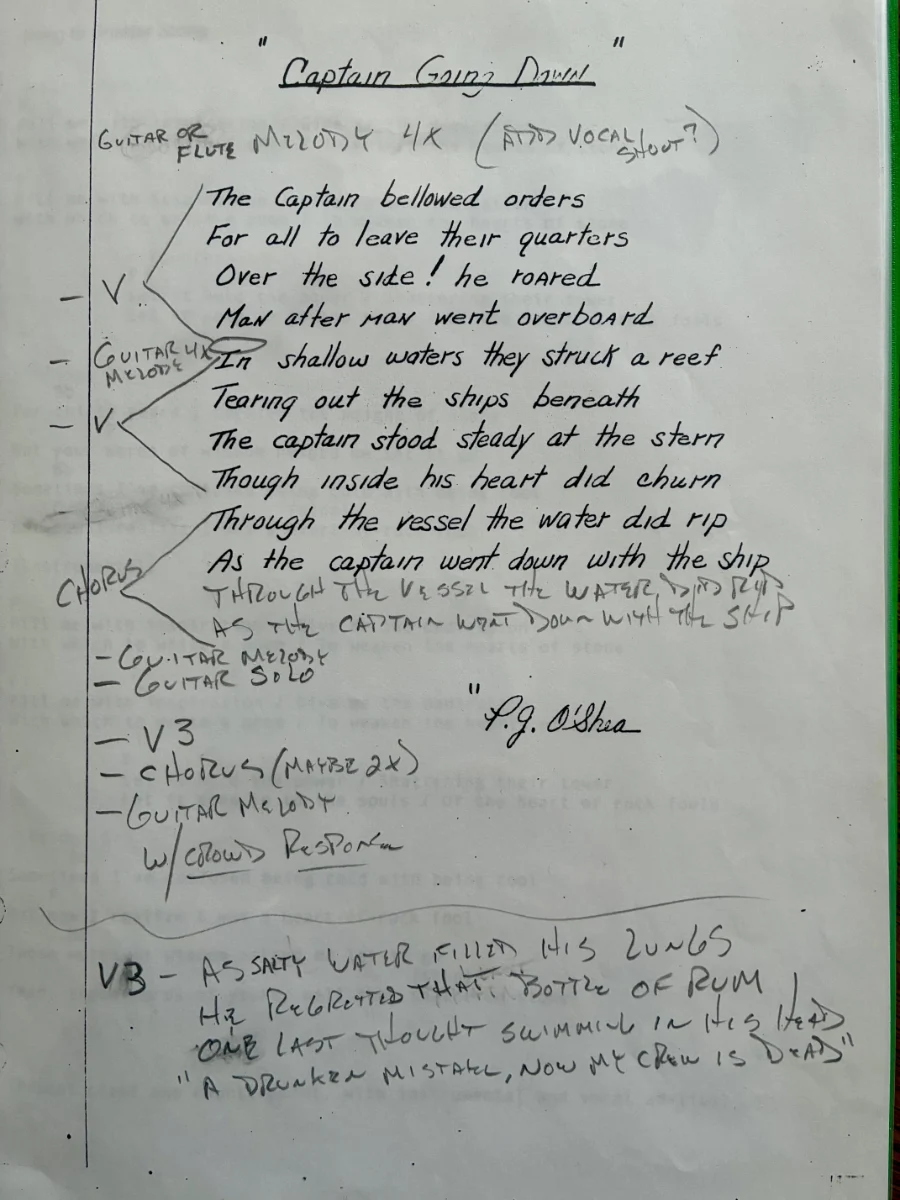 " Captain Going Down "
GUITAR OR FLUTE MELODY 4X (ADD VOCAL SHOUT?)
The Captain bellowed orders
For all to leave their quarters
Over the side! he roared
- V
Man after man went overboard
- GUITAR 4X MELODY
In shallow waters they struck a reef
Tearing out the ships beneath
- V
The captain stood steady at the stern
Though inside his heart did churn
Through the vessel the water did rip
As the captain went down with the ship
CHORUS
THROUGH THE VESSEL THE WATER DID RIP
AS THE CAPTAIN WENT DOWN WITH THE SHIP
- GUITAR MELODY
- GUITAR SOLO
" P.J. O'Shea
- V3
- CHORUS (MAYBE 2X)
- GUITAR MELODY
W/ CROWD RESPONSE
V3 - AS SALTY WATER FILLED HIS LUNGS
HE REGRETTED THAT BOTTLE OF RUM
ONE LAST THOUGHT SWIMMING IN HIS HEAD
"A DRUNKEN MISTAKE, NOW MY CREW IS DEAD"